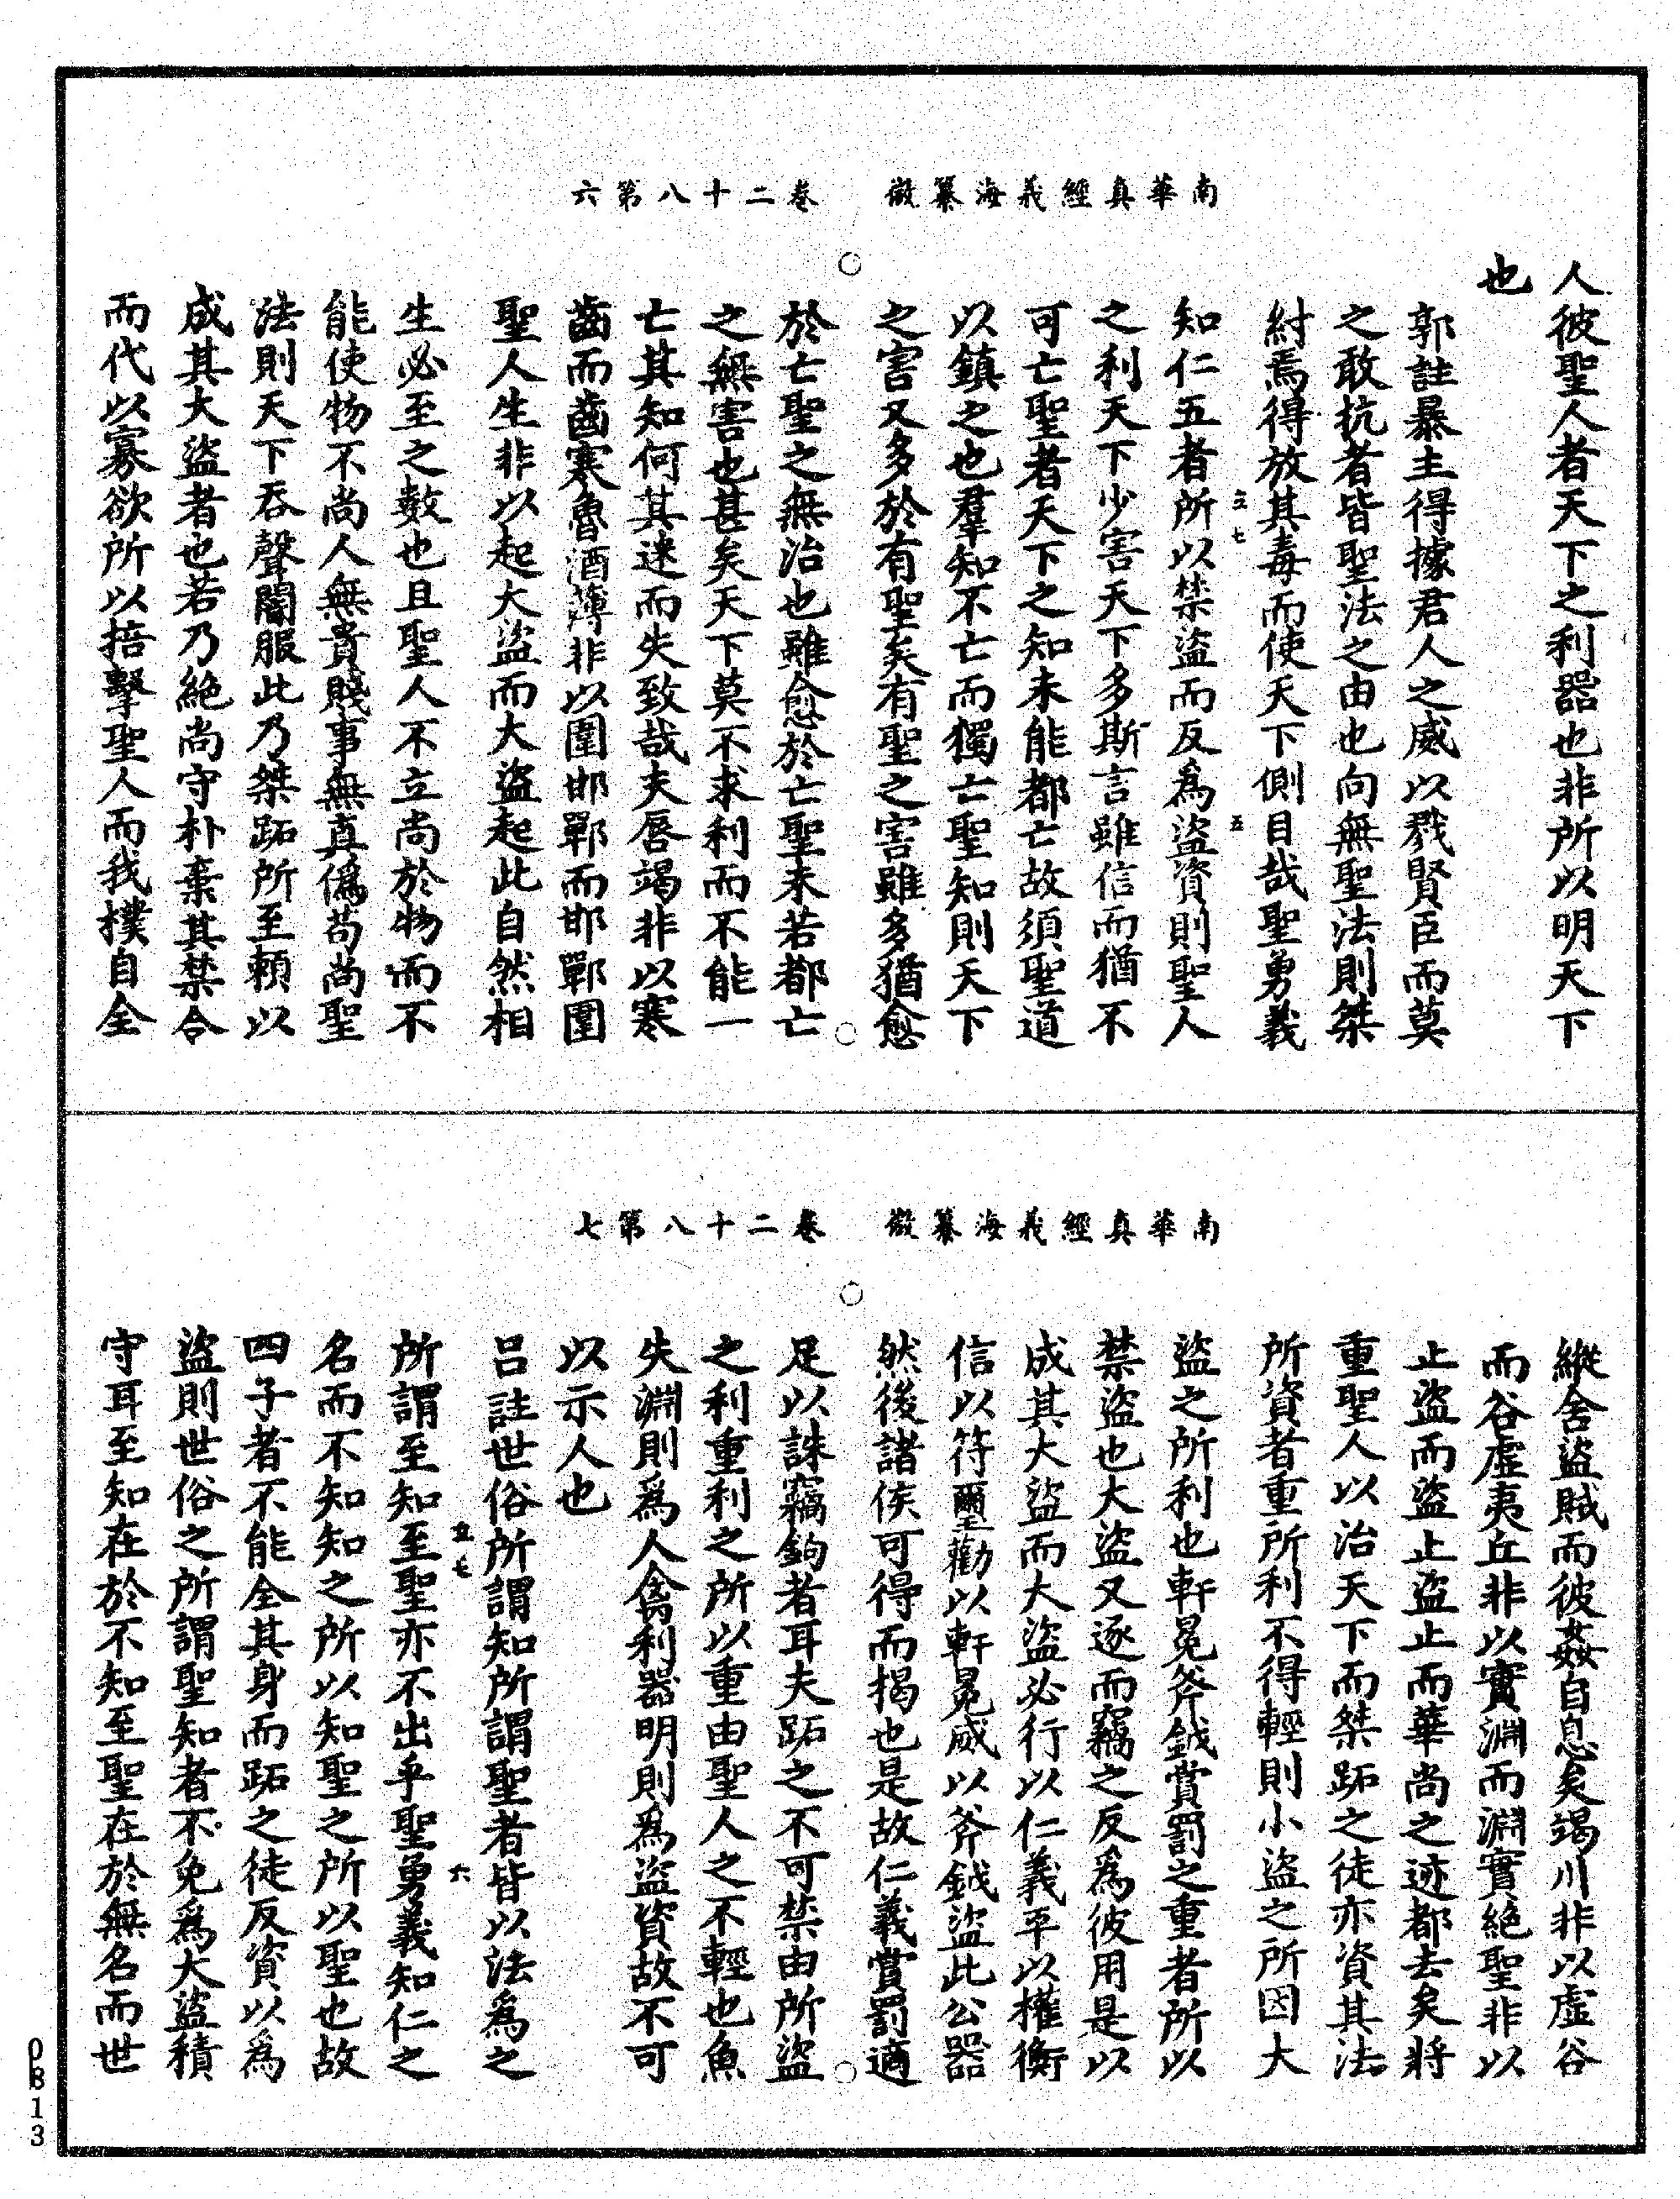 南華真經義海纂微　卷二十八第六
人彼聖人者天下之利器也非所以明天下
也
郭註暴主得據君人之威以戮賢臣而莫
之敢抗者皆聖法之由也向無聖法則桀
紂焉得放其毒而使天下側目哉聖勇義
立七　五
知仁五者所以禁盜而反爲盜資則聖人
之利天下少害天下多斯言雖信而猶不
可亡聖者天下之知未能都亡故須聖道
以鎮之也羣知不亡而獨亡聖知則天下
之害又多於有聖矣有聖之害雖多猶愈
於亡聖之無治也雖愈於亡聖未若都亡
之無害也甚矣天下莫不求利而不能一
亡其知何其迷而失致哉夫唇竭非以寒
齒而齒寒魯酒薄非以圍邯鄲而邯鄲圍
聖人生非以起大盜而大盜起此自然相
生必至之數也且聖人不立尚於物而不
能使物不尚人無貴賤事無真僞苟尚聖
法則天下吞聲闇服此乃桀跖所至賴以
成其大盜者也若乃絕尚守朴棄其禁令
而代以寡欲所以掊擊聖人而我樸自全
南華真經義海纂微　卷二十八第七
縱舍盜賊而彼姦自息矣竭川非以虛谷
而谷虛夷丘非以實淵而淵實絕聖非以
止盜而盜止盜止而華尚之迹都去矣將
重聖人以治天下而桀跖之徒亦資其法
所資者重所利不得輕則小盜之所因大
盜之所利也軒冕斧鉞賞罰之重者所以
禁盜也大盜又逐而竊之反爲彼用是以
成其大盜而大盜必行以仁義平以權衡
信以符璽勸以軒冕威以斧鉞盜此公器
然後諸侯可得而揭也是故仁義賞罰適
足以誅竊鉤者耳夫跖之不可禁由所盜
之利重利之所以重由聖人之不輕也魚
失淵則爲人禽利器明則爲盜資故不可
以示人也
呂註世俗所謂知所謂聖者皆以法爲之
立七　六
所謂至知至聖亦不出乎聖勇義知仁之
名而不知知之所以知聖之所以聖也故
四子者不能全其身而跖之徒反資以爲
盜則世俗之所謂聖知者不免爲大盜積
守耳至知在於不知至聖在於無名而世
0813